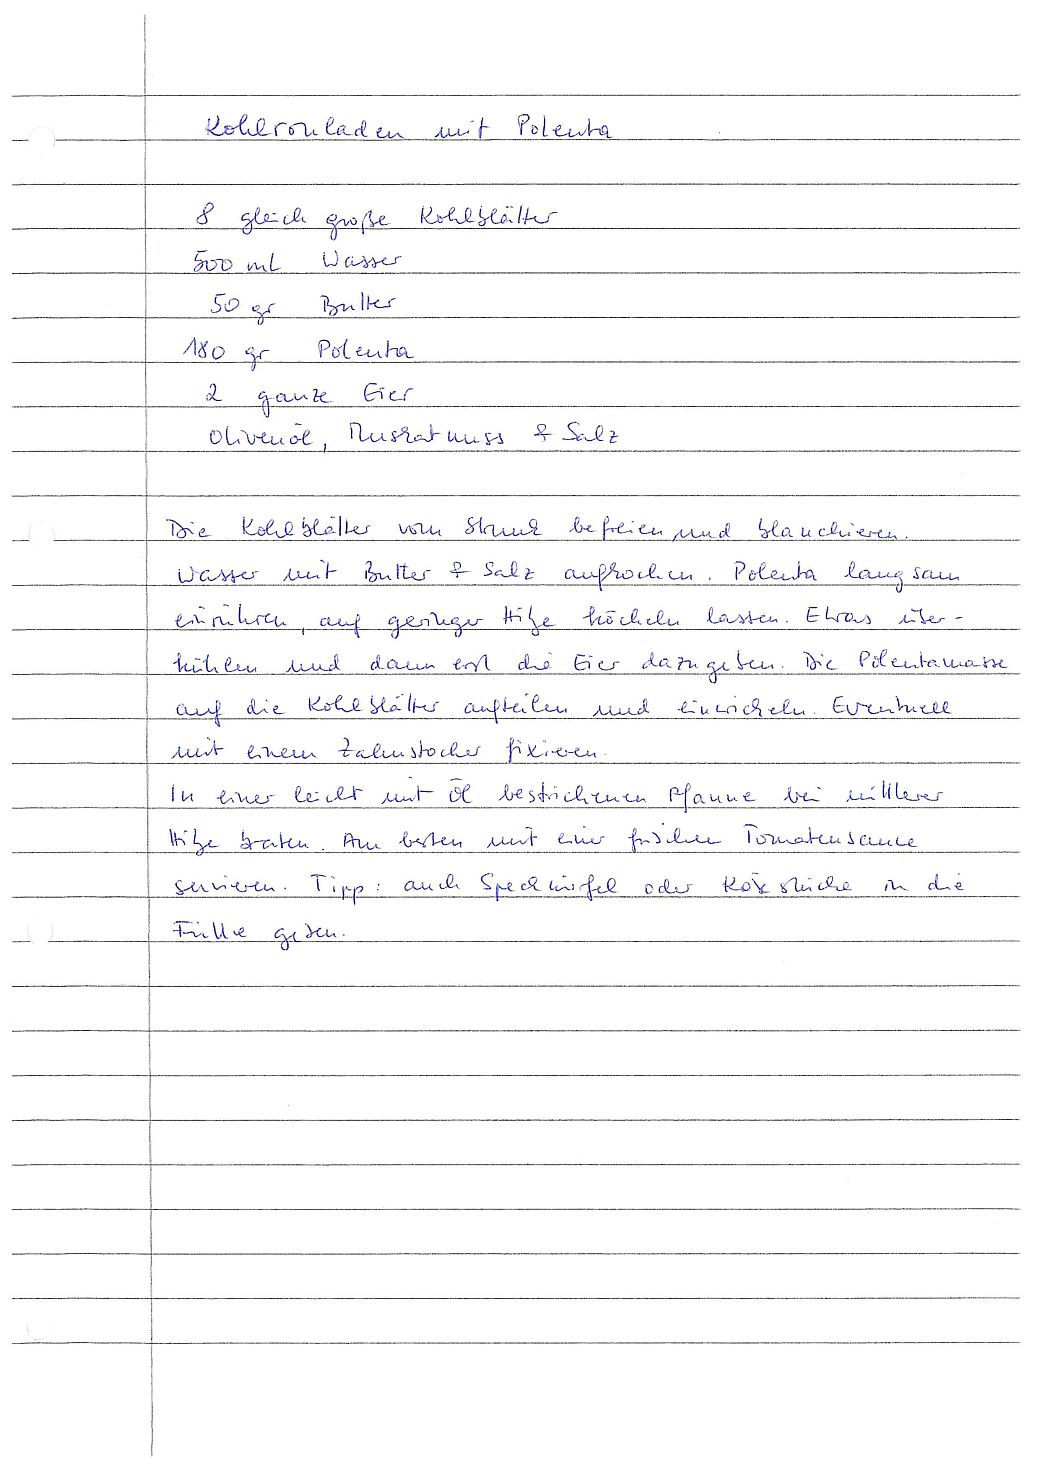 Kohlrouladen mit Polenta
8 gleich große Kohlblätter
500 ml Wasser
50 gr Butter
180 gr Polenta
2 ganze Eier
Olivenöl, Muskatnuss & Salz
Die Kohlblätter vom Strunk befreien und blanchieren.
Wasser mit Butter & Salz aufkochen. Polenta langsam
einrühren, auf geringer Hitze köcheln lassen. Etwas über-
kühlen und dann erst die Eier dazugeben. Die Polentamasse
auf die Kohlblätter aufteilen und einwickeln. Eventuell
mit einem Zahnstocher fixieren.
In einer leicht mit Öl bestrichenen Pfanne bei mittlerer
Hitze braten. Am besten mit einer frischen Tomatensauce
servieren. Tipp: auch Speckwürfel oder Käsestücke in die
Fülle geben.